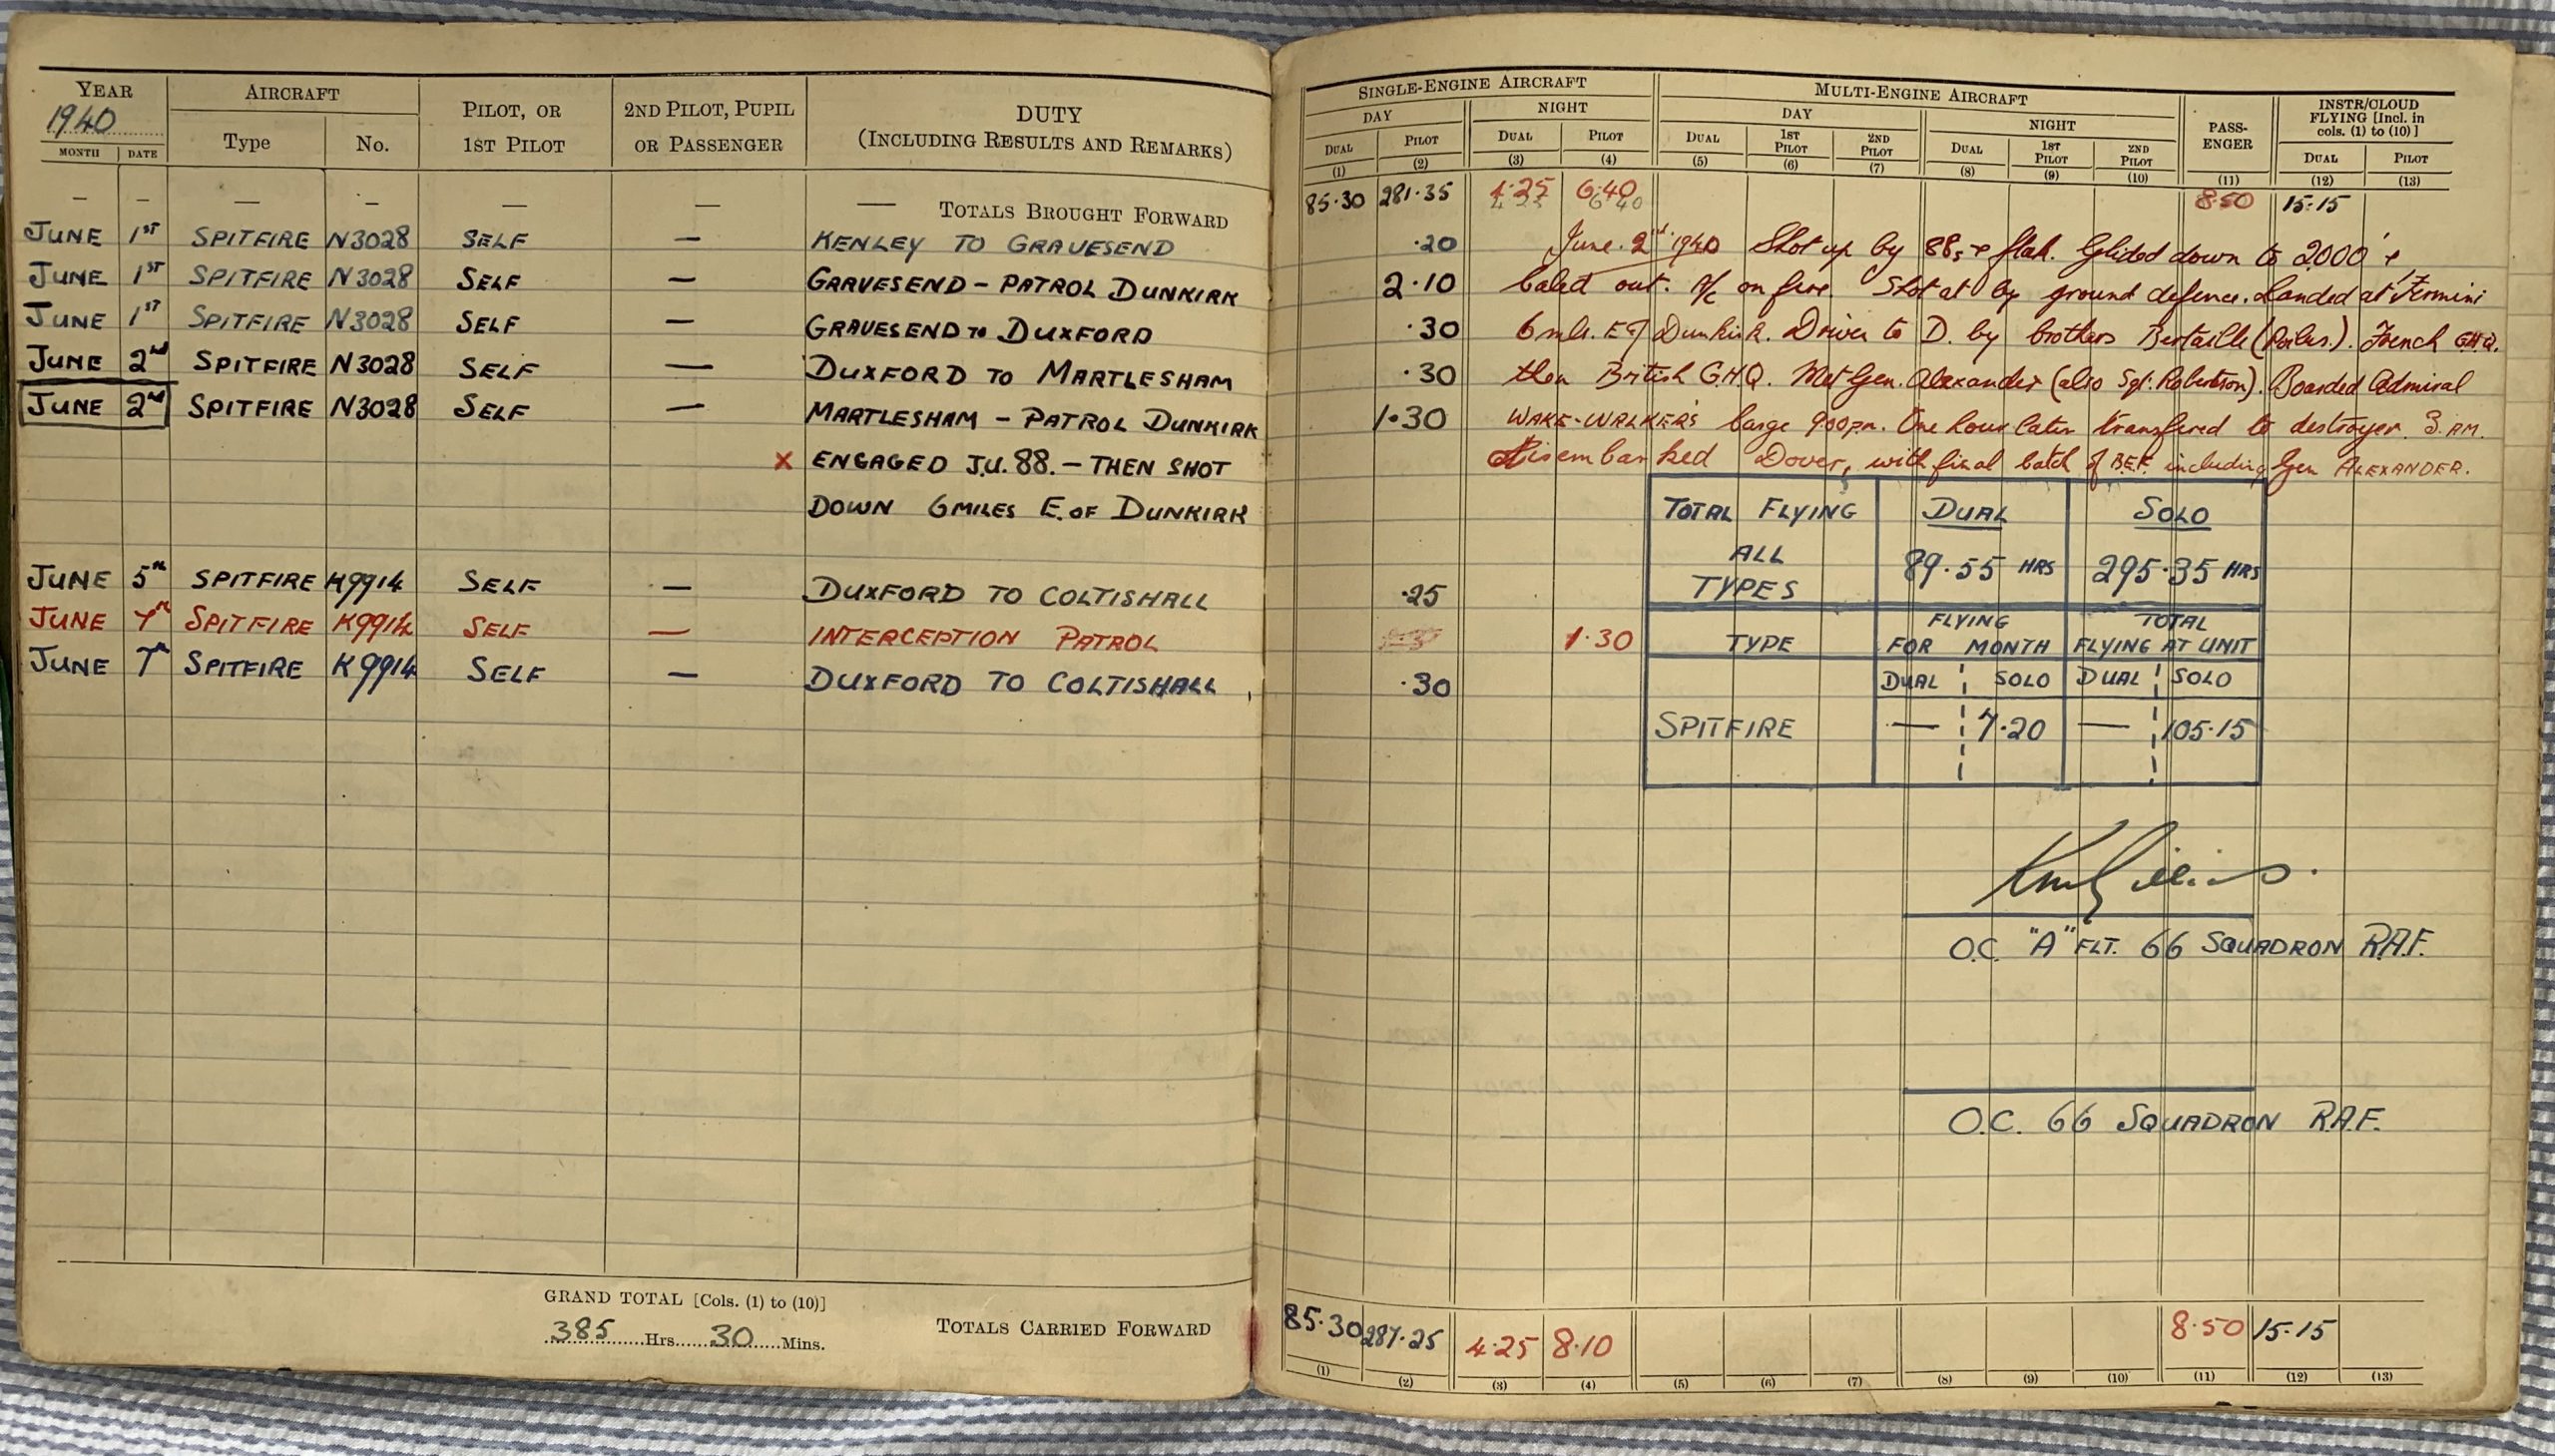 YEAR 1940
AIRCRAFT
MONTH DATE Type No.
PILOT, OR 1ST PILOT
2ND PILOT, PUPIL OR PASSENGER
DUTY (INCLUDING RESULTS AND REMARKS)
SINGLE-ENGINE AIRCRAFT
DAY NIGHT
DUAL PILOT DUAL PILOT
(1) (2) (3) (4)
MULTI-ENGINE AIRCRAFT
DAY NIGHT
DUAL 1ST PILOT 2ND PILOT DUAL 1ST PILOT 2ND PILOT
(5) (6) (7) (8) (9) (10)
PASS-ENGER
(11)
INSTR/CLOUD FLYING [Incl. in cols. (1) to (10)]
DUAL PILOT
(12) (13)
— — — — — — — TOTALS BROUGHT FORWARD 85.30 281.35 4.25 6.40 8.50 15.15
JUNE 1ST SPITFIRE N3028 SELF — KENLEY TO GRAVESEND .20
JUNE 1ST SPITFIRE N3028 SELF — GRAVESEND - PATROL DUNKIRK 2.10
JUNE 1ST SPITFIRE N3028 SELF — GRAVESEND TO DUXFORD .30
JUNE 2nd SPITFIRE N3028 SELF — DUXFORD TO MARTLESHAM .30
JUNE 2nd SPITFIRE N3028 SELF — MARTLESHAM - PATROL DUNKIRK 1.30
X ENGAGED J.U. 88. - THEN SHOT
DOWN 6 MILES E. OF DUNKIRK
JUNE 5th SPITFIRE K9914 SELF — DUXFORD TO COLTISHALL .25
JUNE 7th SPITFIRE K9914 SELF — INTERCEPTION PATROL 1.30
JUNE 7th SPITFIRE K9914 SELF — DUXFORD TO COLTISHALL .30
June. 2nd 1940 Shot up by 88s + flak. Glided down to 2000' +
baled out. A/c on fire. Shot at by ground defence. Landed at
6 mls. E of Dunkirk. Driven to D. by brothers Bertaille (Poilus). French G.H.Q.
then British G.H.Q. Met Gen. Alexander (also Sgt. Robertson). Boarded Admiral
WAKE-WALKER'S barge 9.00pm. One hour later transfered to destroyer. 3. AM.
disembarked Dover, with final batch of B.E.F. including Gen ALEXANDER.
TOTAL FLYING ALL TYPES
DUAL SOLO
89.55 HRS 295.35 HRS
TYPE FLYING FOR MONTH TOTAL FLYING AT UNIT
DUAL SOLO DUAL SOLO
SPITFIRE — 7.20 — 105.15
O.C. "A" FLT. 66 SQUADRON R.A.F.
O.C. 66 SQUADRON R.A.F.
GRAND TOTAL [Cols. (1) to (10)]
385 Hrs. 30 Mins.
TOTALS CARRIED FORWARD 85.30 287.25 4.25 8.10 8.50 15.15
(1) (2) (3) (4) (5) (6) (7) (8) (9) (10) (11) (12) (13)